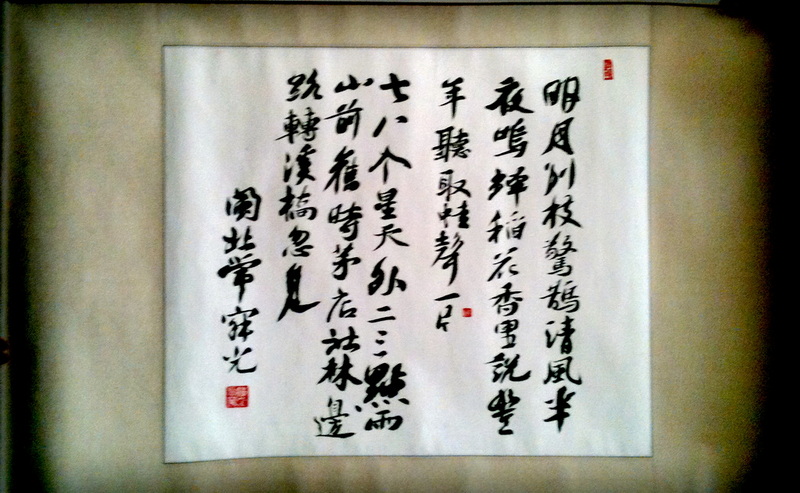 明月别枝驚鵲清風半
夜鳴蟬稻花香里説豐
年聽取蛙聲一片
七八个星天外二三點雨
山前舊時茅店社林邊
路轉溪橋忽見
閩北常光